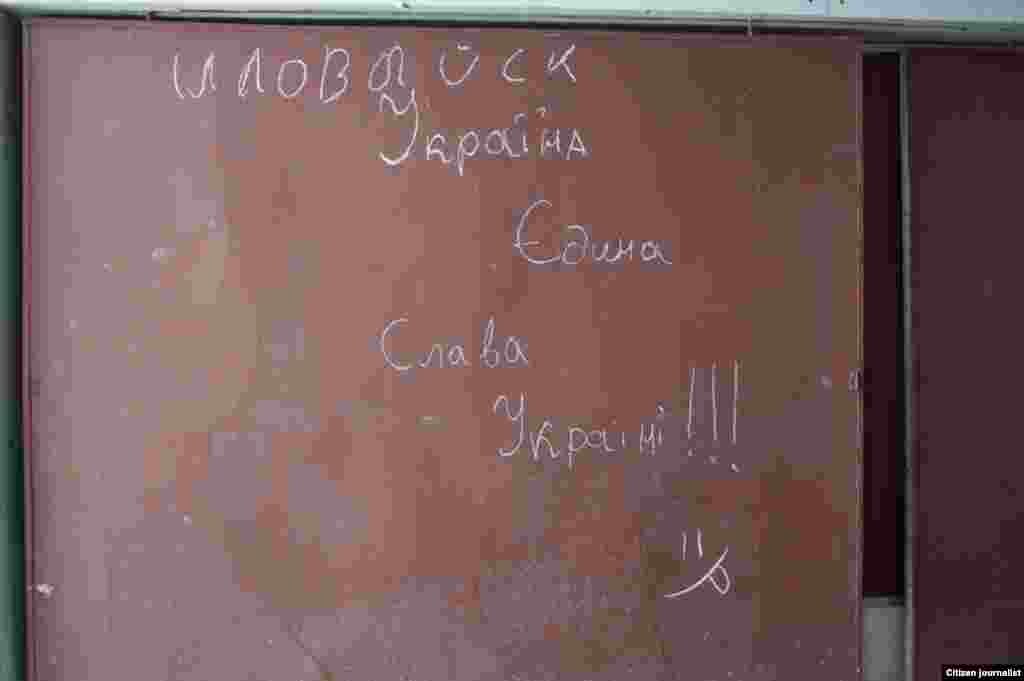 ИЛОВАЙСК
Україна
Єдина
Слава
Україні!!!
Citizen journalist